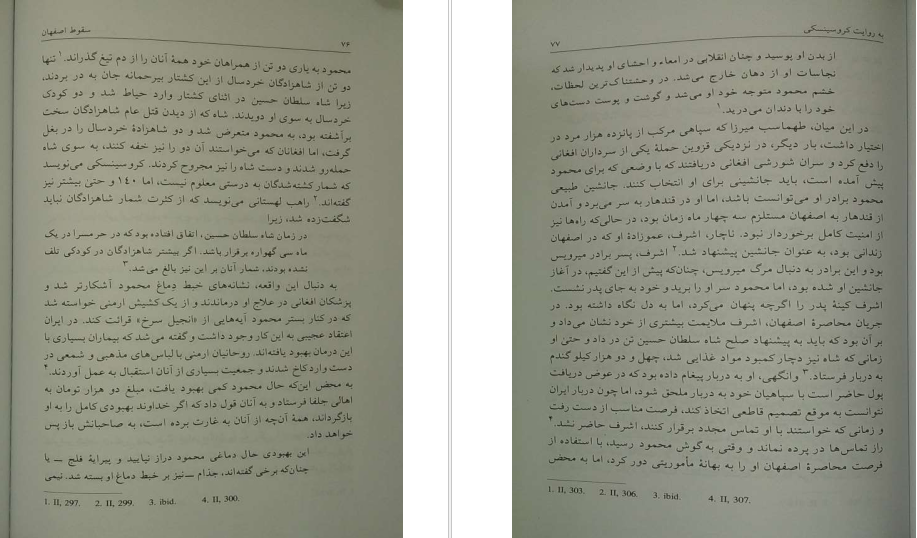 سقوط اصفهان
۷۶
محمود به یاری دو تن از همراهان خود همهٔ آنان را از دم تیغ گذراند.۱ تنها
دو تن از شاهزادگان خردسال از این کشتار بیرحمانه جان به در بردند،
زیرا شاه سلطان حسین در اثنای کشتار وارد حیاط شد و دو کودک
خردسال به سوی او دویدند. شاه که از دیدن قتل عام شاهزادگان سخت
برآشفته بود، به محمود متعرض شد و دو شاهزادهٔ خردسال را در بغل
گرفت، اما افغانان که می‌خواستند آن دو را نیز خفه کنند، به سوی شاه
حمله‌ور شدند و دست شاه را نیز مجروح کردند. کروسینسکی می‌نویسد
که شمار کشته‌شدگان به درستی معلوم نیست، اما ۱۴۰ و حتیٰ بیشتر نیز
گفته‌اند.۲ راهب لهستانی می‌نویسد که از کثرت شمار شاهزادگان نباید
شگفت‌زده شد، زیرا
در زمان شاه سلطان حسین، اتفاق افتاده بود که در حرمسرا در یک
ماه سی گهواره برقرار باشد. اگر بیشتر شاهزادگان در کودکی تلف
نشده بودند، شمار آنان بر این نیز بالغ می‌شد.۳
به دنبال این واقعه، نشانه‌های خبط دِماغ محمود آشکارتر شد و
پزشکان افغانی در علاج او درماندند و از یک کشیش ارمنی خواسته شد
که در کنار بستر محمود آیه‌هایی از «انجیل سرخ» قرائت کند. در ایران
اعتقاد عجیبی به این کار وجود داشت و گفته می‌شد که بیماران بسیاری با
این درمان بهبود یافته‌اند. روحانیان ارمنی با لباس‌های مذهبی و شمعی در
دست وارد کاخ شدند و جمعیت بسیاری از آنان استقبال به عمل آوردند.۴
به محض این‌که حال محمود کمی بهبود یافت، مبلغ دو هزار تومان به
اهالی جلفا فرستاد و به آنان قول داد که اگر خداوند بهبودی کامل را به او
بازگرداند، همهٔ آن‌چه از آنان به غارت برده است، به صاحبانش باز پس
خواهد داد.
این بهبودی حال دماغی محمود دراز نپایید و پیرایهٔ فلج ــ یا
چنان‌که برخی گفته‌اند، جذام ــ نیز بر خبط دماغ او بسته شد. نیمی
1. II, 297. 2. II, 299. 3. ibid. 4. II, 300.
به روایت کروسینسکی
۷۷
از بدن او پوسید و چنان انقلابی در امعاء و احشای او پدیدار شد که
نجاسات او از دهان خارج می‌شد. در وحشتناک‌ترین لحظات،
خشم محمود متوجه خود او می‌شد و گوشت و پوست دست‌های
خود را با دندان می‌درید.۱
در این میان، طهماسب میرزا که سپاهی مرکب از پانزده هزار مرد در
اختیار داشت، بار دیگر، در نزدیکی قزوین حملهٔ یکی از سرداران افغانی
را دفع کرد و سران شورشی افغانی دریافتند که با وضعی که برای محمود
پیش آمده است، باید جانشینی برای او انتخاب کنند. جانشین طبیعی
محمود برادر او می‌توانست باشد، اما او در قندهار به سر می‌برد و آمدن
از قندهار به اصفهان مستلزم سه چهار ماه زمان بود، در حالی‌که راه‌ها نیز
از امنیت کامل برخوردار نبود. ناچار، اشرف، عموزادهٔ او که در اصفهان
زندانی بود، به عنوان جانشین پیشنهاد شد.۲ اشرف، پسر برادر میرویس
بود و این برادر به دنبال مرگ میرویس، چنان‌که پیش از این گفتیم، در آغاز
جانشین او شده بود، اما محمود سر او را برید و خود به جای پدر نشست.
اشرف کینهٔ پدر را اگرچه پنهان می‌کرد، اما به دل نگاه داشته بود. در
جریان محاصرهٔ اصفهان، اشرف ملایمت بیشتری از خود نشان می‌داد و
بر آن بود که باید به پیشنهاد صلح شاه سلطان حسین تن در داد و حتیٰ او
زمانی که شاه نیز دچار کمبود مواد غذایی شد، چهل و دو هزار کیلو گندم
به دربار فرستاد.۳ وانگهی، او به دربار پیغام داده بود که در عوض دریافت
پول حاضر است با سپاهیان خود به دربار ملحق شود، اما چون دربار ایران
نتوانست به موقع تصمیم قاطعی اتخاذ کند، فرصت مناسب از دست رفت
و زمانی که خواستند با او تماس مجدد برقرار کنند، اشرف حاضر نشد.۴
راز تماس‌ها در پرده نماند و وقتی به گوش محمود رسید، با استفاده از
فرصت محاصرهٔ اصفهان او را به بهانهٔ مأموریتی دور کرد، اما به محض
1. II, 303. 2. II, 306. 3. ibid. 4. II, 307.